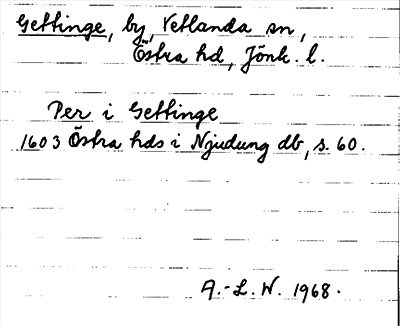 Gettinge, by, Vetlanda sn,
Östra hd, Jönk. l.
Per i Gettinge
1603 Östra hds i Njudung db, s. 60.
A.-L. W. 1968.